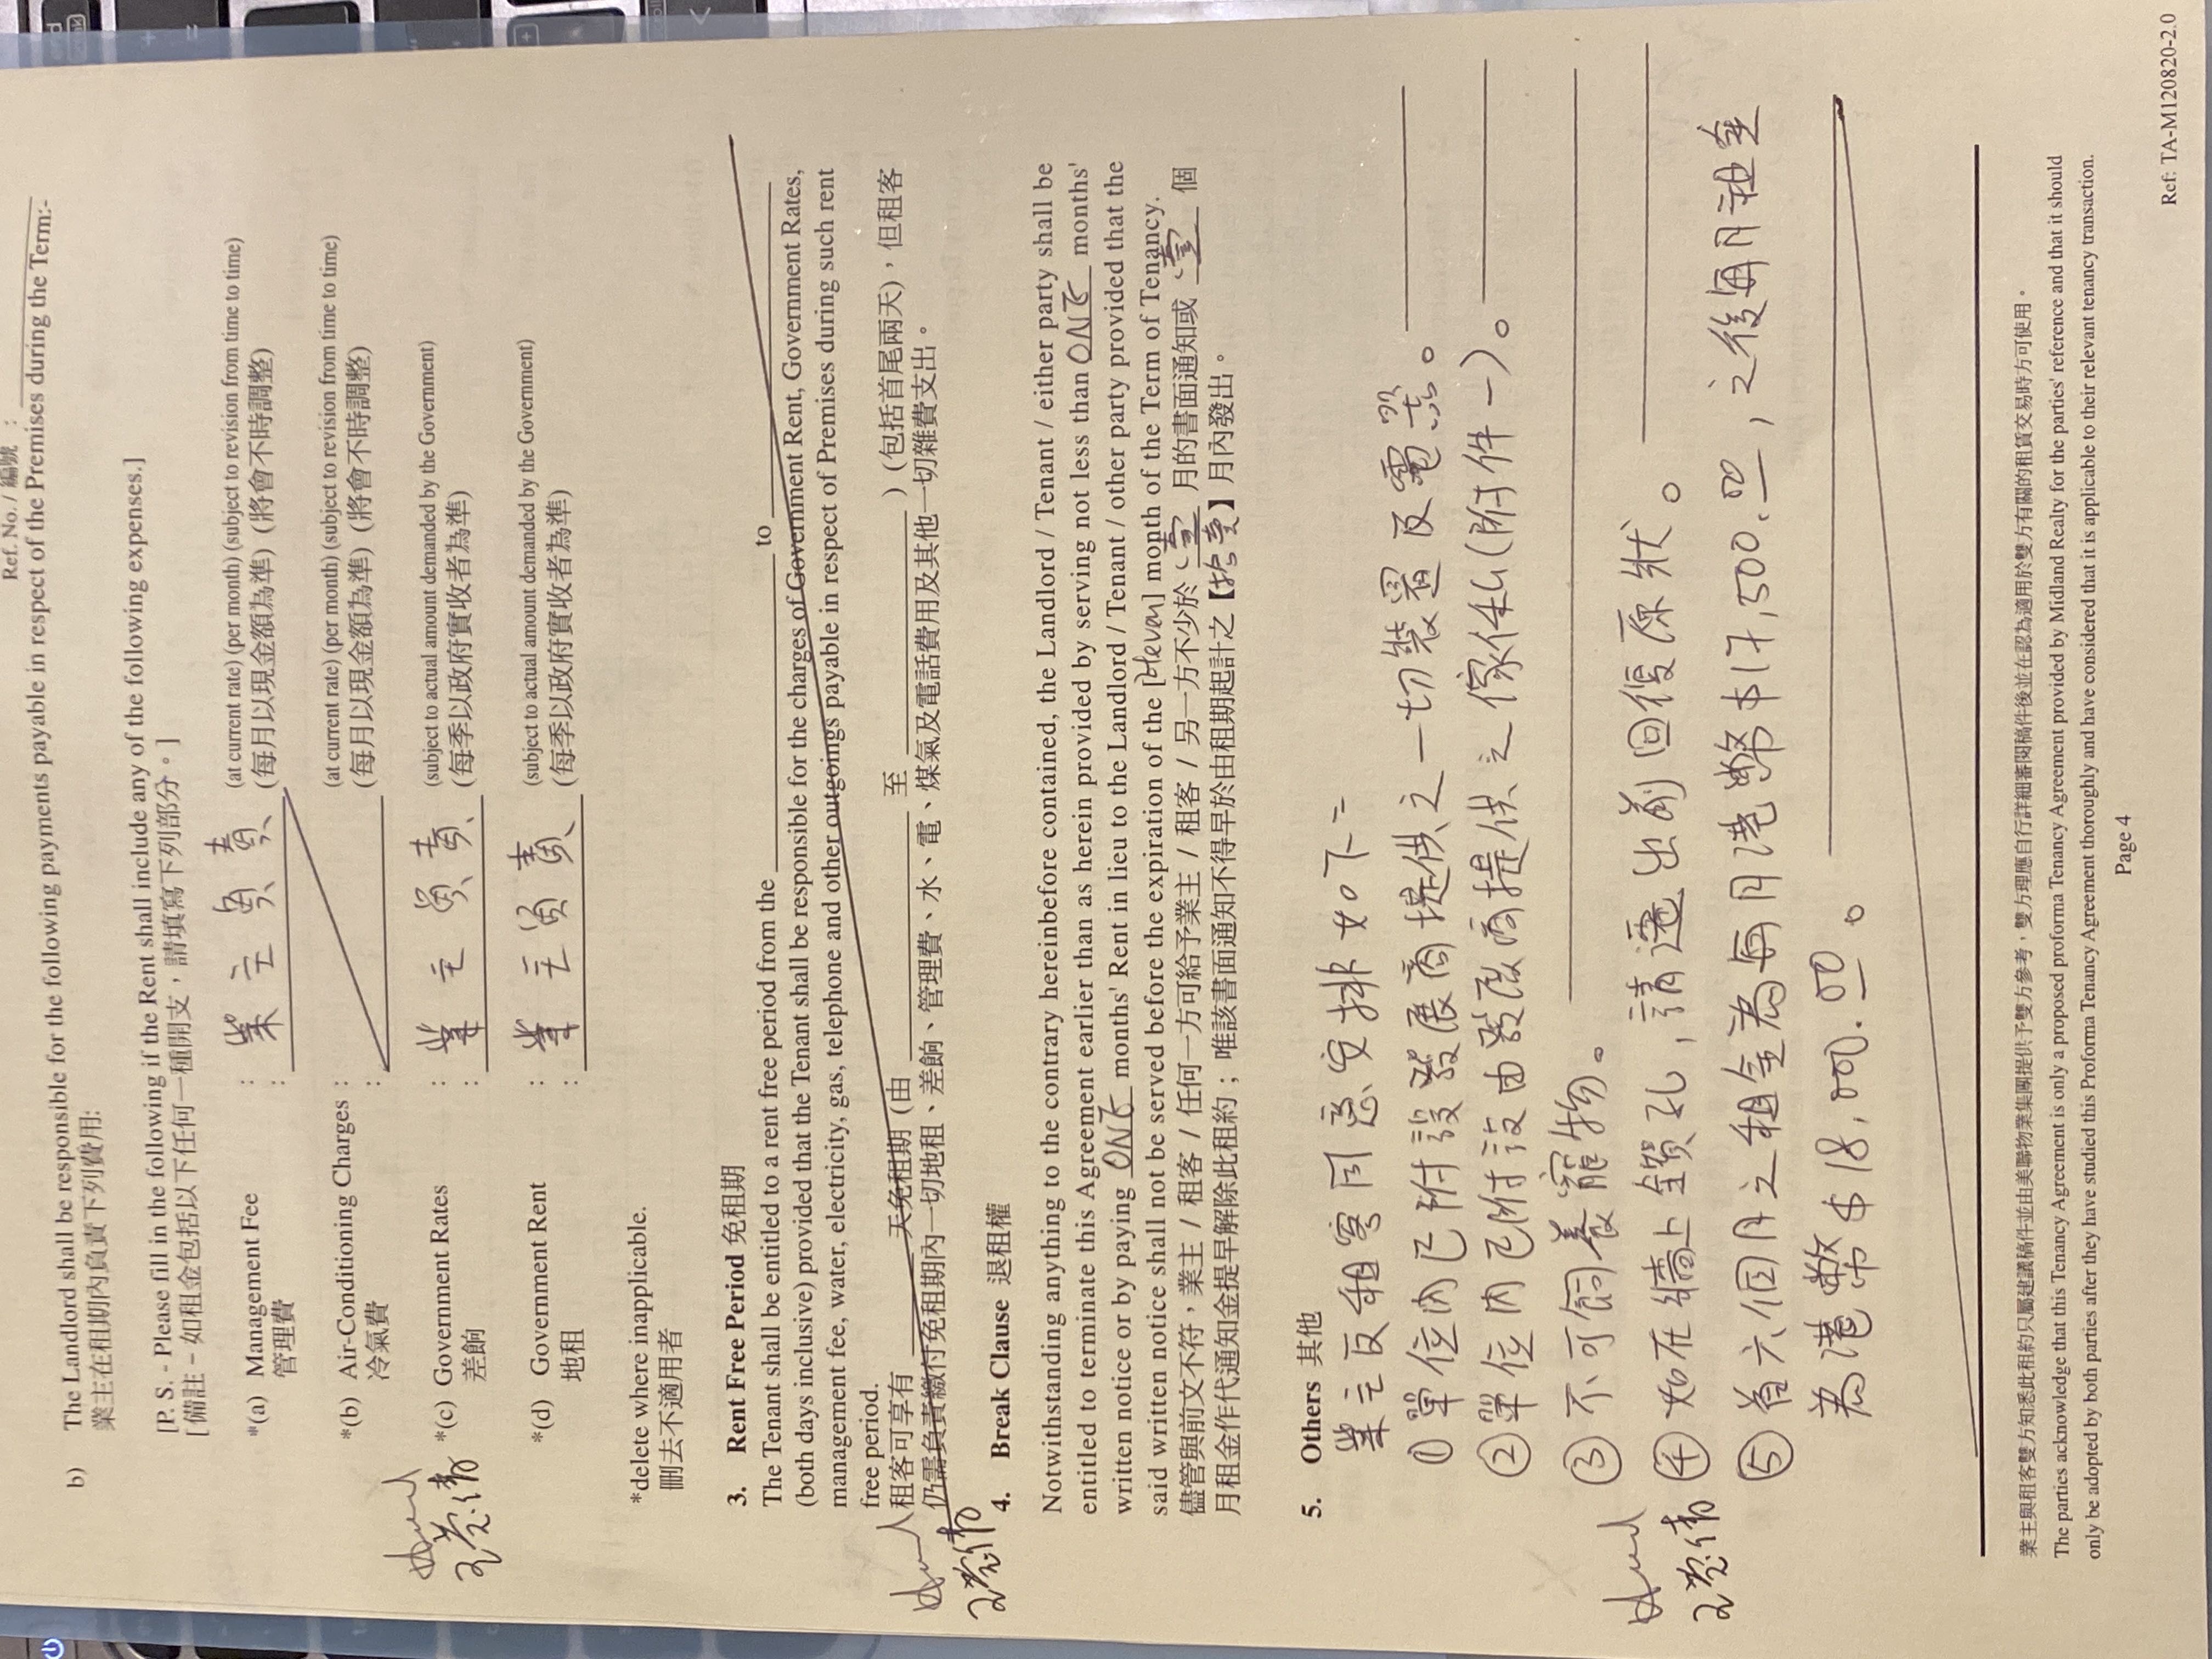 Ref. No. / 編號 :
b) The Landlord shall be responsible for the following payments payable in respect of the Premises during the Term:-
業主在租期內負責下列費用:
[P. S. - Please fill in the following if the Rent shall include any of the following expenses.]
[備註 – 如租金包括以下任何一種開支，請填寫下列部分。]
*(a) Management Fee : 業主負責 (at current rate) (per month) (subject to revision from time to time)
管理費 : (每月以現金額為準) (將會不時調整)
*(b) Air-Conditioning Charges : (at current rate) (per month) (subject to revision from time to time)
冷氣費 : (每月以現金額為準) (將會不時調整)
*(c) Government Rates : 業主負責 (subject to actual amount demanded by the Government)
差餉 : (每季以政府實收者為準)
*(d) Government Rent : 業主負責 (subject to actual amount demanded by the Government)
地租 : (每季以政府實收者為準)
*delete where inapplicable.
刪去不適用者
3. Rent Free Period 免租期
The Tenant shall be entitled to a rent free period from the ______ to ______
(both days inclusive) provided that the Tenant shall be responsible for the charges of Government Rent, Government Rates,
management fee, water, electricity, gas, telephone and other outgoings payable in respect of Premises during such rent
free period.
租客可享有 ______ 天免租期 (由 ______ 至 ______ ) (包括首尾兩天)，但租客
仍需負責繳付免租期內一切地租、差餉、管理費、水、電、煤氣及電話費用及其他一切雜費支出。
4. Break Clause 退租權
Notwithstanding anything to the contrary hereinbefore contained, the Landlord / Tenant / either party shall be
entitled to terminate this Agreement earlier than as herein provided by serving not less than ONE months'
written notice or by paying ONE months' Rent in lieu to the Landlord / Tenant / other party provided that the
said written notice shall not be served before the expiration of the [eleven] month of the Term of Tenancy.
儘管與前文不符，業主 / 租客 / 任何一方可給予業主 / 租客 / 另一方不少於 壹 月的書面通知或 壹 個
月租金作代通知金提早解除此租約；唯該書面通知不得早於由租期起計之【拾壹】月內發出。
5. Others 其他
業主及租客同意安排如下=
① 單位內已附設發展商提供之一切裝置及電器。
② 單位內已附設由發展商提供之傢俬(附件一)。
③ 不可飼養寵物。
④ 如在牆上鑽孔，請遷出前回復原狀。
⑤ 首六個月之租金為每月港幣$17,500.00，之後每月租金
為港幣$18,000.00。
業主與租客雙方知悉此租約只屬建議稿件並由美聯物業集團提供予雙方參考，雙方理應自行詳細審閱稿件後並在認為適用於雙方有關的租賃交易時方可使用。
The parties acknowledge that this Tenancy Agreement is only a proposed proforma Tenancy Agreement provided by Midland Realty for the parties' reference and that it should
only be adopted by both parties after they have studied this Proforma Tenancy Agreement thoroughly and have considered that it is applicable to their relevant tenancy transaction.
Page 4
Ref: TA-M120820-2.0